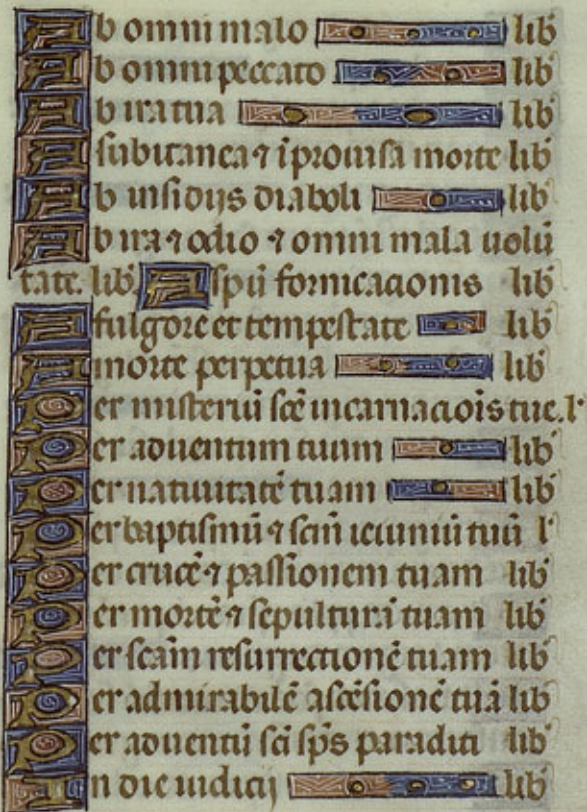 Ab omni malo lib
Ab omni peccato lib
Ab ira tua lib
A subitanea ⁊ īprouisa morte lib
Ab insidijs diaboli lib
Ab ira ⁊ odio ⁊ omni mala uolū
tate. lib A spū fornicacionis lib
A fulgore et tempestate lib
A morte perpetua lib
Per misteriū scē incarnaciōis tue. l
Per aduentum tuum lib
Per natiuitatē tuam lib
Per baptismū ⁊ scm̄ ieiuniū tuū l
Per crucē ⁊ passionem tuam lib
Per mortē ⁊ sepulturā tuam lib
Per scām resurrectionē tuam lib
Per admirabilē ascēsionē tuā lib
Per aduentū sci sp̄s paracliti lib
In die iudicij lib